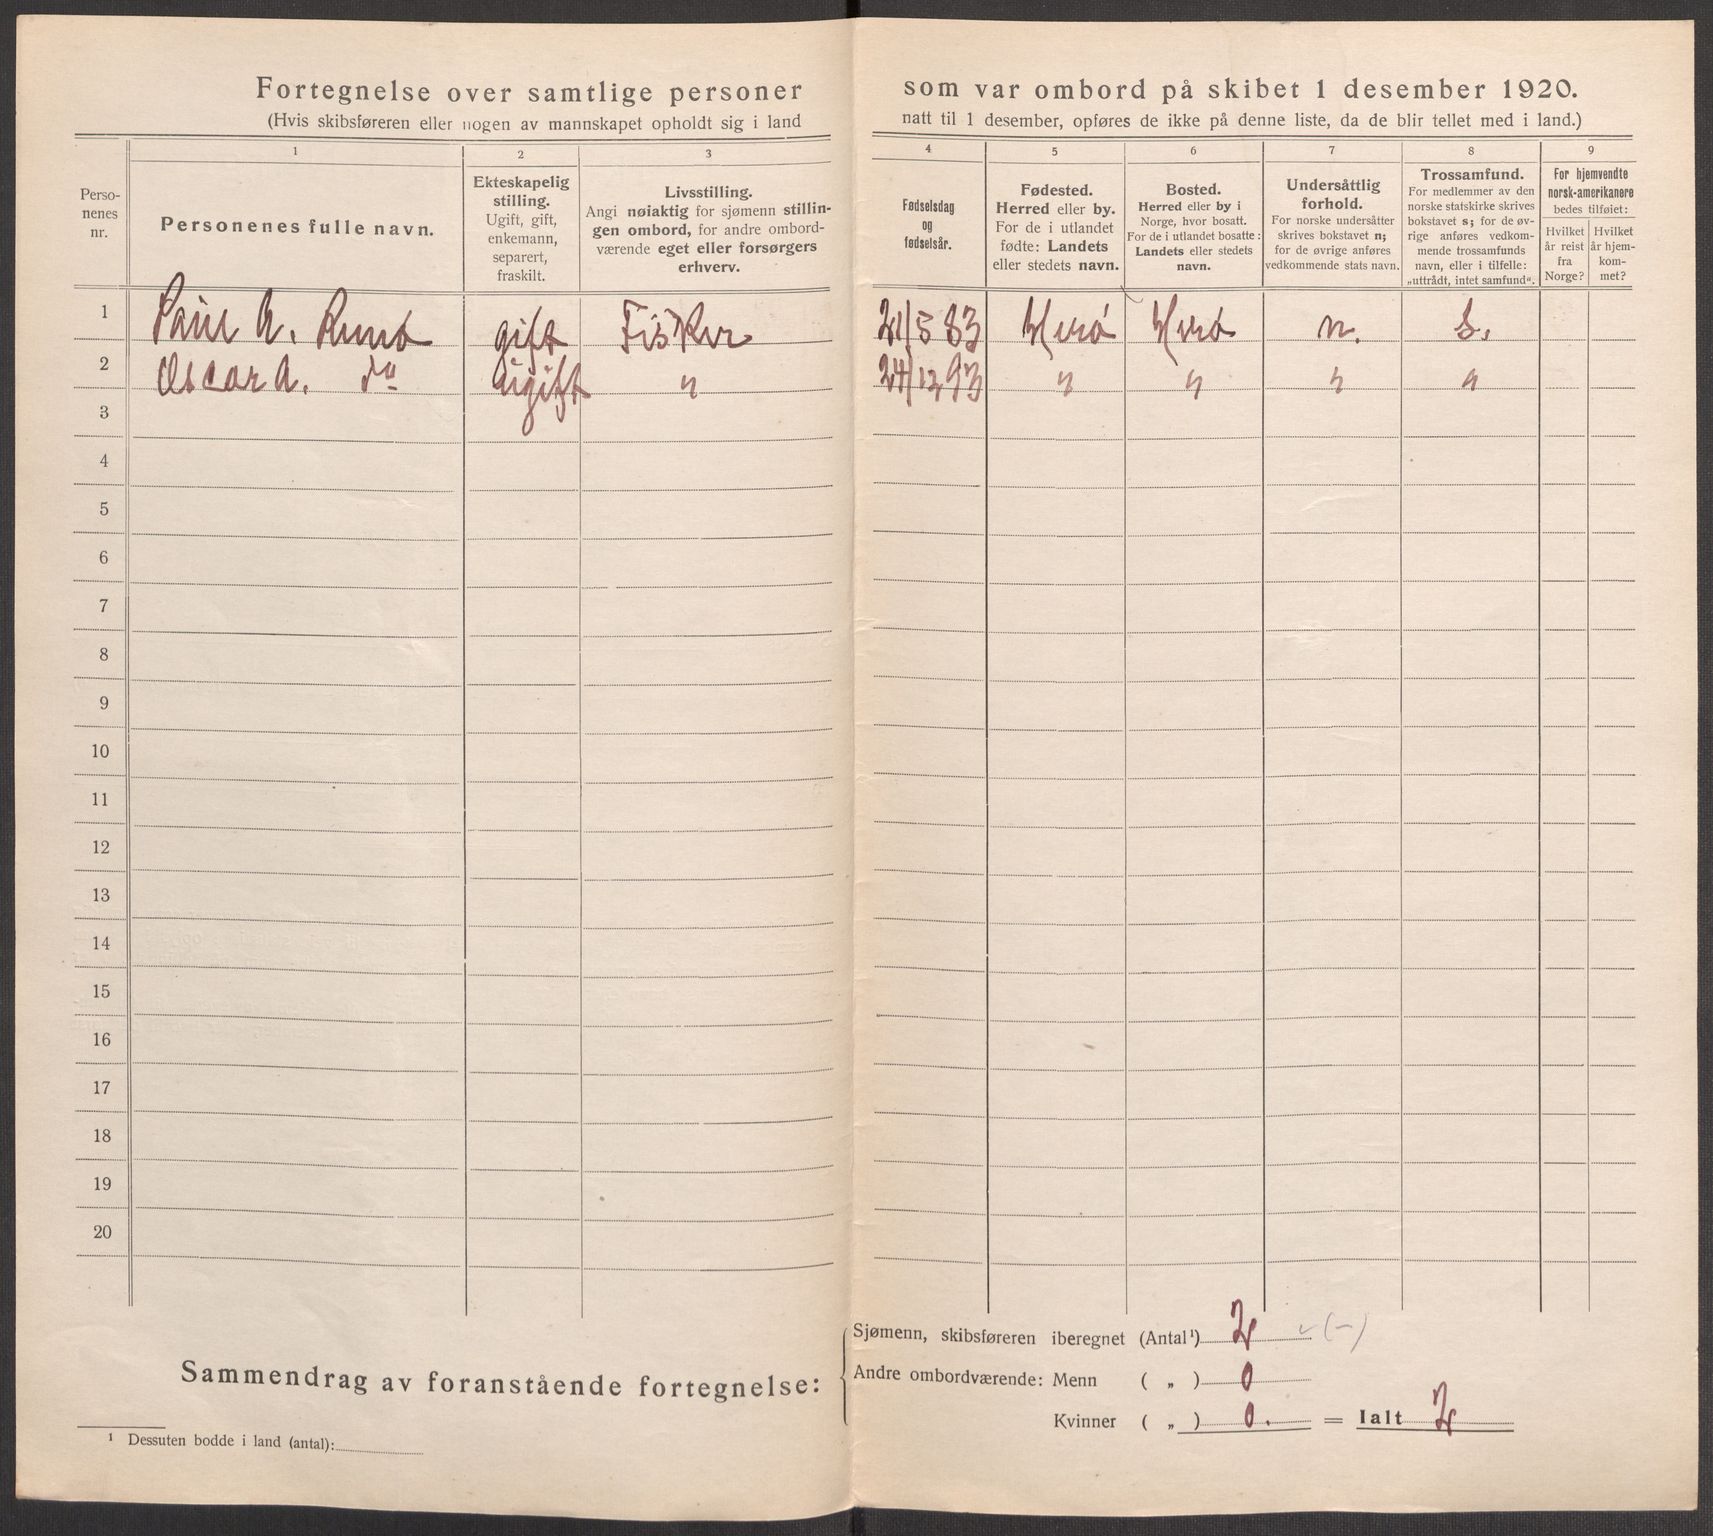 Fortegnelse over samtlige personer som var ombord på skibet 1 desember 1920.
(Hvis skibsføreren eller nogen av mannskapet opholdt sig i land natt til 1 desember, opføres de ikke på denne liste, da de blir tellet med i land.)
Personenes nr.
1
Personenes fulle navn.
2
Ekteskapelig
stilling.
Ugift, gift,
enkemann,
separert,
fraskilt.
3
Livsstilling.
Angi nøiaktig for sjømenn stillin-
gen ombord, for andre ombord-
værende eget eller forsørgers
erhverv.
4
Fødselsdag
og
fødselsår.
5
Fødested.
Herred eller by.
For de i utlandet
fødte: Landets
eller stedets navn.
6
Bosted.
Herred eller by i
Norge, hvor bosatt.
For de i utlandet bosatte:
Landets eller stedets
navn.
7
Undersåttlig
forhold.
For norske undersåtter
skrives bokstavet n;
for de øvrige anføres
vedkommende stats navn.
8
Trossamfund.
For medlemmer av den
norske statskirke skrives
bokstavet s; for de øv-
rige anføres vedkom-
mende trossamfunds
navn, eller i tilfelle:
„uttrådt, intet samfund“.
9
For hjemvendte
norsk-amerikanere
bedes tilføiet:
Hvilket
år reist
fra
Norge?
Hvilket
år hjem-
kom-
met?
1 Paul A. gift Fisker 21/5 83 Herø Herø n. s.
2 Oscar A. do ugift " 24/12 93 " " " "
3
4
5
6
7
8
9
10
11
12
13
14
15
16
17
18
19
20
Sammendrag av foranstående fortegnelse:
Sjømenn, skibsføreren iberegnet (Antal¹) 2 (-)
Andre ombordværende: Menn ( „ ) 0
Kvinner ( „ ) 0. = Ialt 2
¹ Dessuten bodde i land (antal):